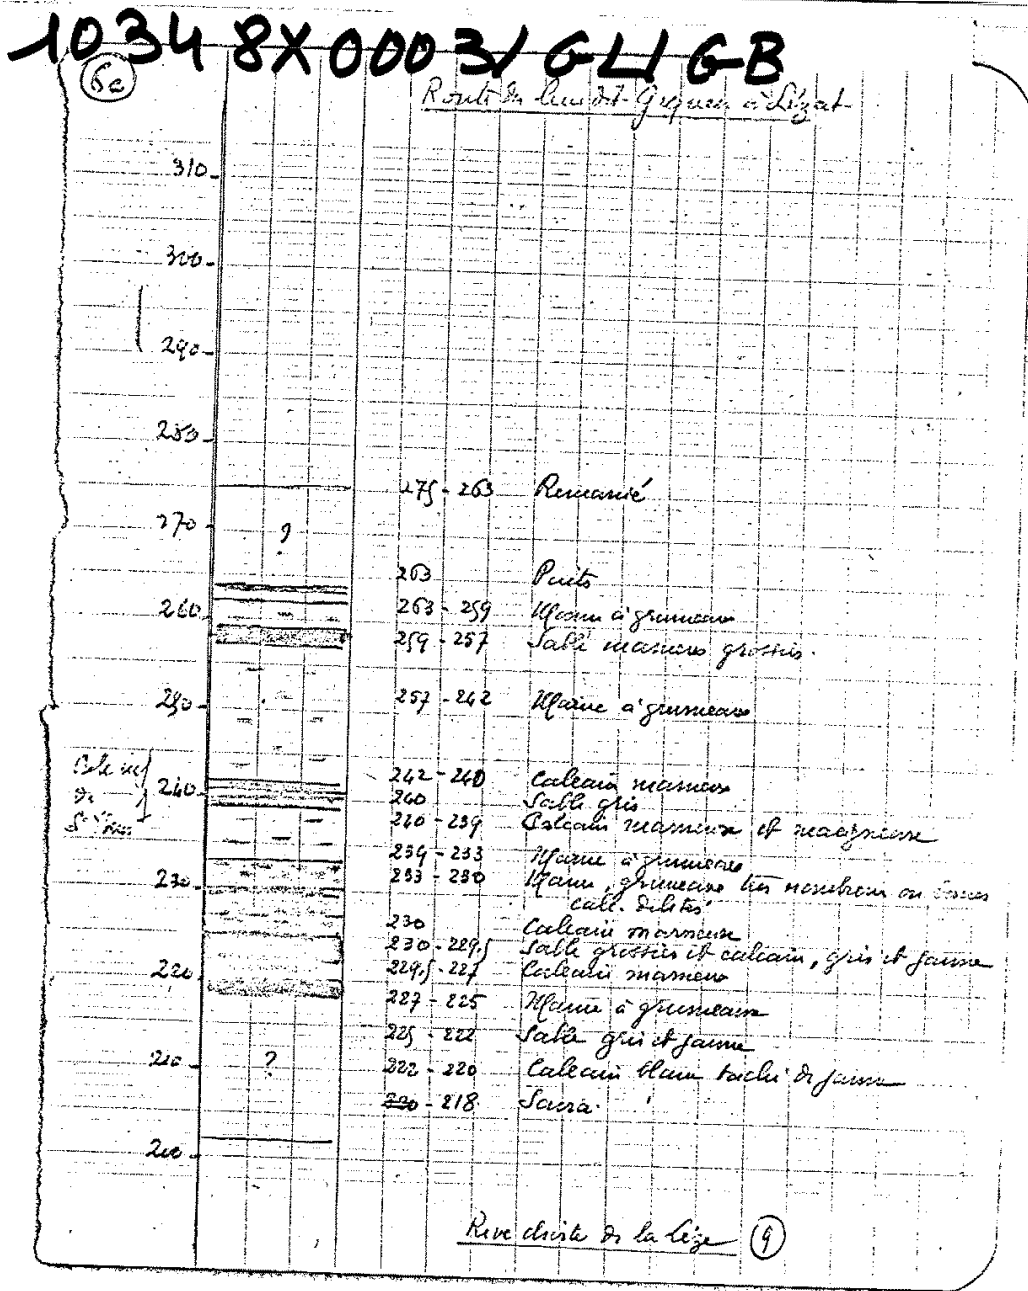 10348X0003/GL/GB
6c
Route du lieu dit à Lézat
310
300
290
280
275-263 Remanié
270
?
263 Puits
260
263-259 Marne à grumeaux
259-257 Sable marneux grossier.
250
257-242 Marne à grumeaux
242-240 Calcaire marneux
240
240 Sable gris
240-239 Calcaire marneux et
239-233 Marne à grumeaux
230
233-230 Marne, grumeaux très nombreux ou
calc.
230 Calcaire marneux
230-229,5 Sable grossier et calcaire, gris et jaune
220
229,5-227 Calcaire marneux
227-225 Marne à grumeaux
225-222 Sable gris et jaune
210
?
222-220 Calcaire blanc taché de jaune
220-218
200
Rive droite de la Lèze 9